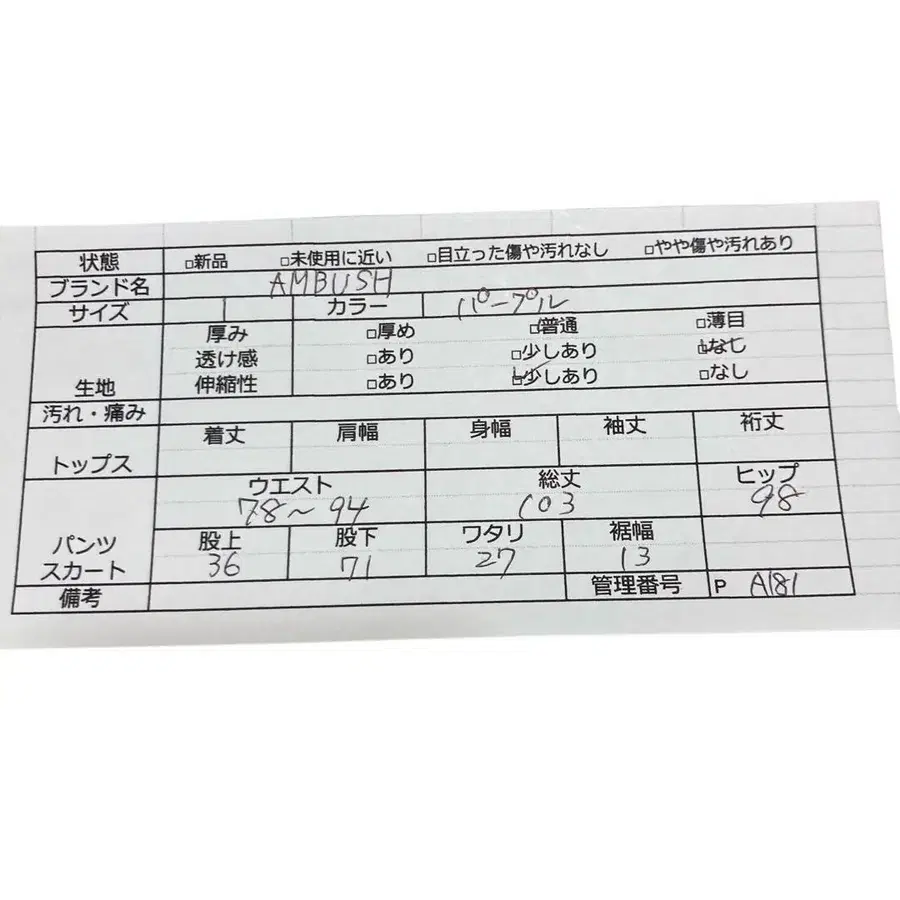 状態 □新品 □未使用に近い □目立った傷や汚れなし □やや傷や汚れあり
ブランド名 AMBUSH
サイズ 1 カラー パープル
厚み □厚め □普通 □薄目
透け感 □あり □少しあり □なし
生地 伸縮性 □あり □少しあり □なし
汚れ・痛み
着丈 肩幅 身幅 袖丈 裄丈
トップス
ウエスト 総丈 ヒップ
78〜94 103 98
股上 股下 ワタリ 裾幅
パンツ
スカート 36 71 27 13
備考 管理番号 P A181